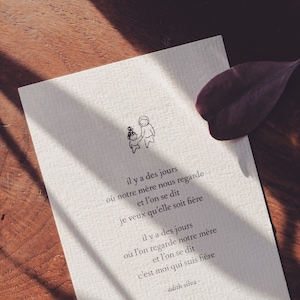 il y a des jours
où notre mère nous regarde
et l'on se dit
je veux qu'elle soit fière
il y a des jours
où l'on regarde notre mère
et l'on se dit
c'est moi qui suis fière
édith silva